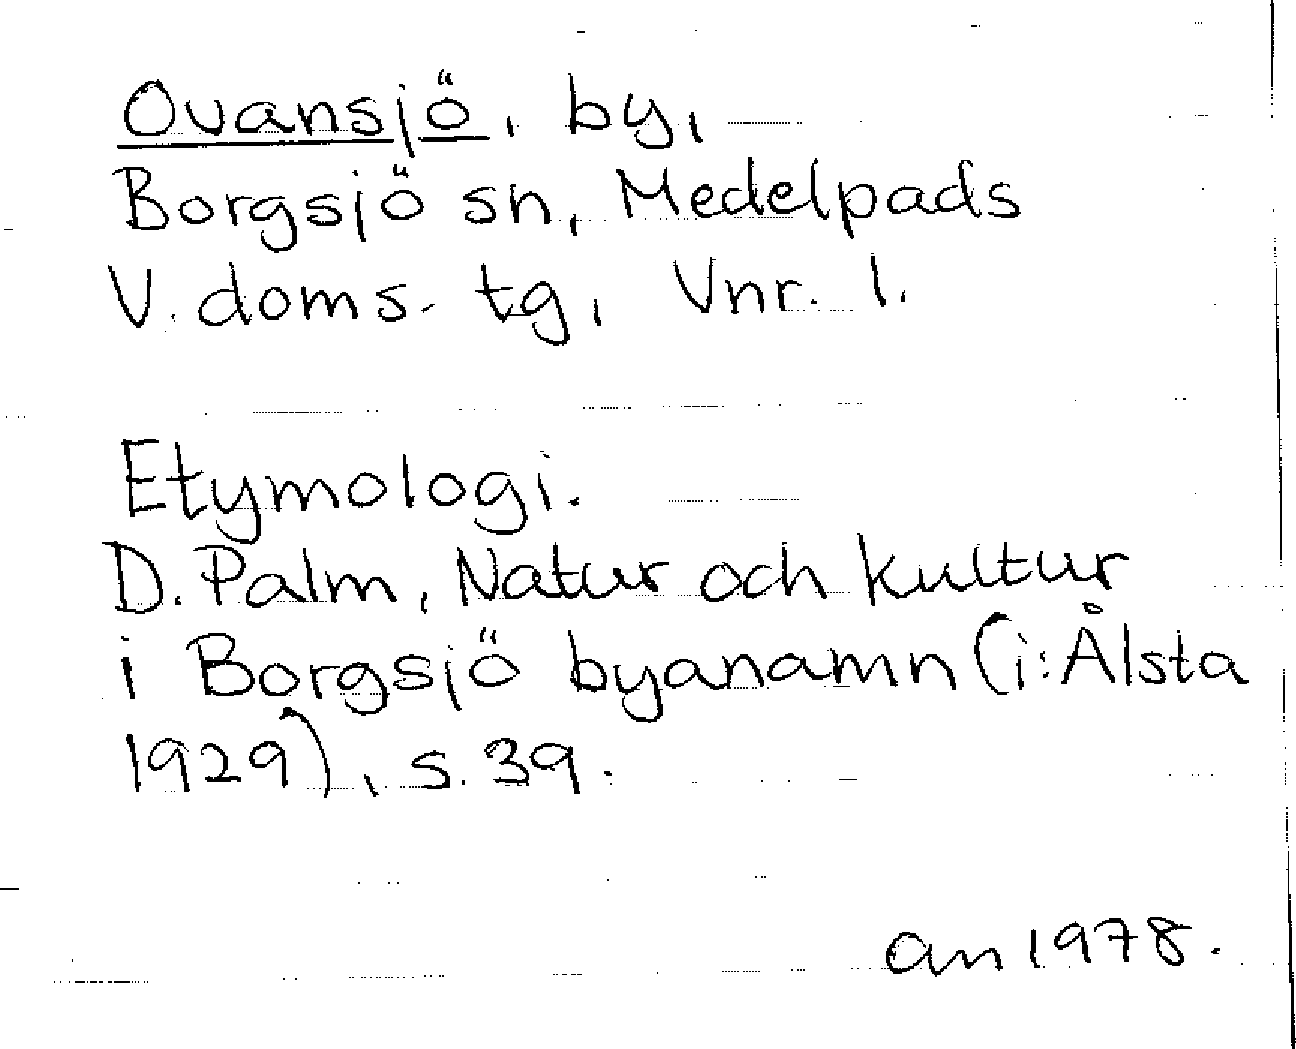 Ovansjö, by,
Borgsjö sn, Medelpads
V. doms. tg, Vnr. 1.
Etymologi.
D. Palm, Natur och kultur
i Borgsjö byanamn (i: Ålsta
1929), s. 39.
an 1978.